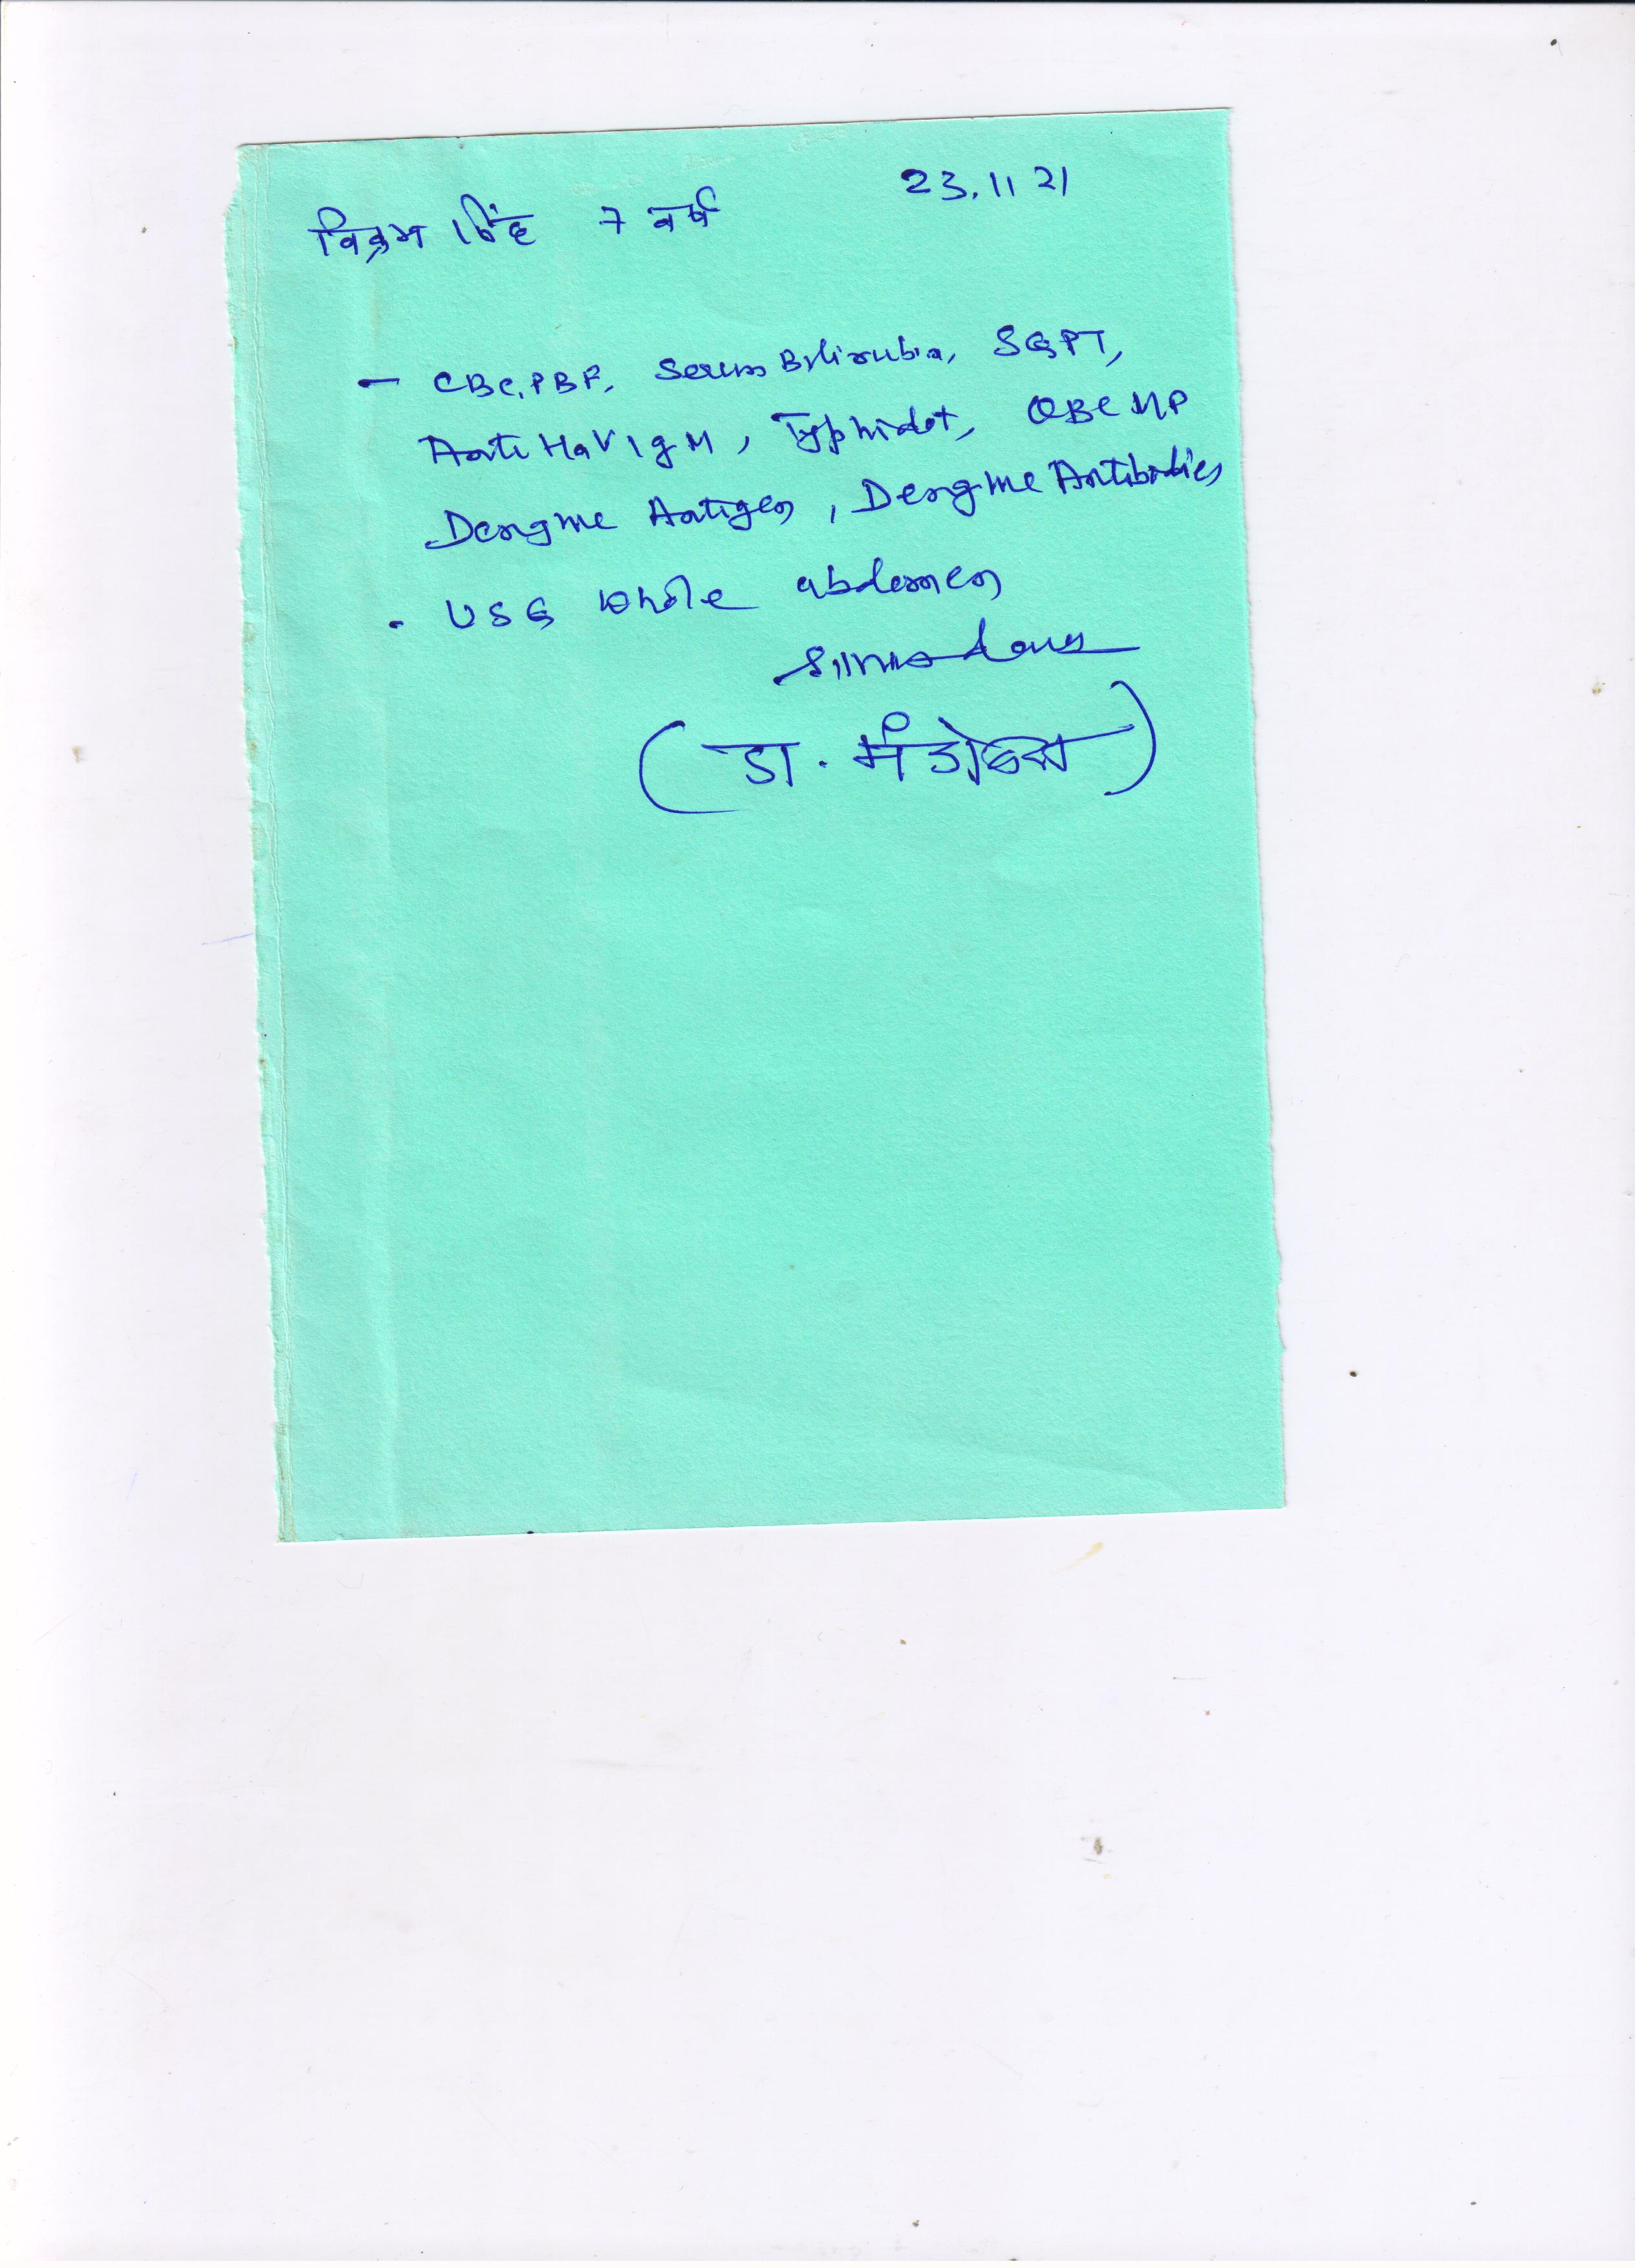 विक्रम सिंह 7 वर्ष 23.11 21
- CBC, PBF, Serum Bilirubin, SGPT,
Anti HaV IgM, Typhidot, QBC MP
Dengue Antigen, Dengue Antibodies
. USG whole abdomen
(डा.